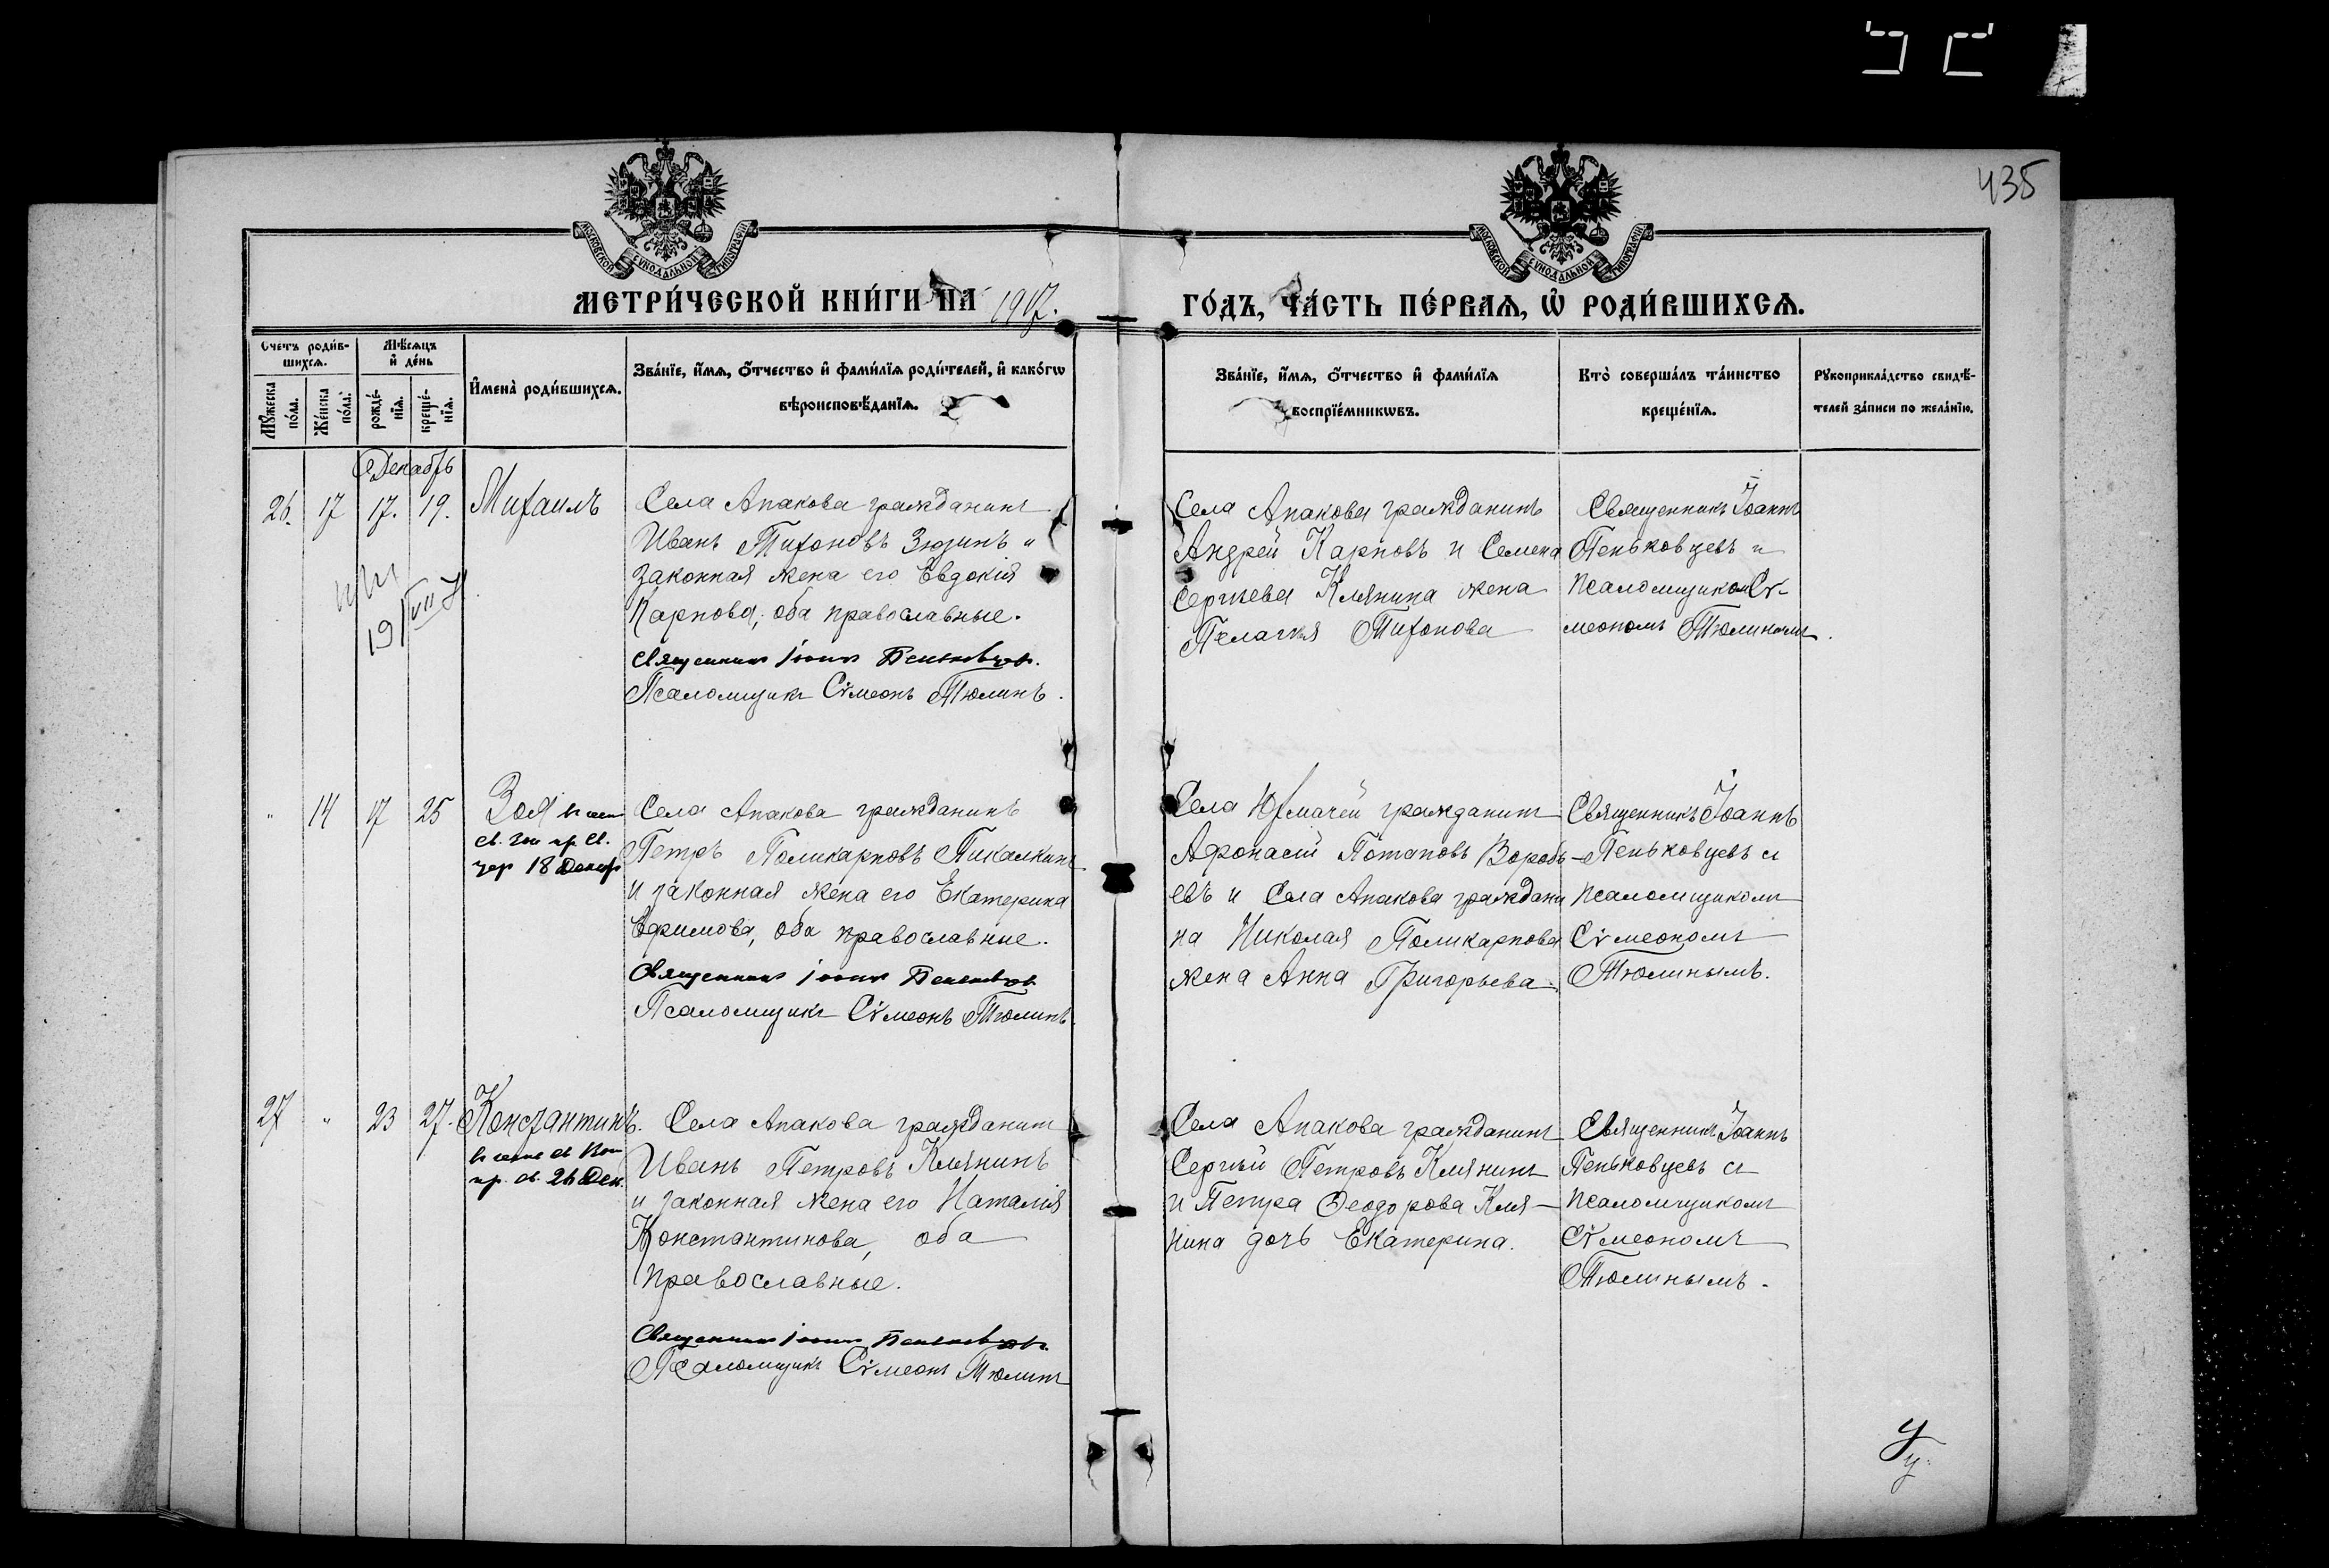 435
МОСКОВСКОЙ СѴНОДАЛЬНОЙ ТИПОГРАФІИ
МОСКОВСКОЙ СѴНОДАЛЬНОЙ ТИПОГРАФІИ
МЕТРИ́ЧЕСКОЙ КНИ́ГИ НА 1917.
ГО́ДЪ, ЧА́СТЬ ПЕ́РВАѦ, Ѡ҆ РОДИ́ВШИХСѦ.
Счетъ роди́в-
шихсѧ.
Мѣ́сѧцъ
и҆ де́нь
Мꙋ́жеска
по́ла.
Же́нска
по́ла.
рожде́-
нїѧ.
креще́-
нїѧ.
И҆мена̀ роди́вшихсѧ.
Зва́нїе, и҆́мѧ, ѻ҆́тчество и҆ фами́лїѧ роди́телей, и҆ како́гѡ
вѣроисповѣ́данїѧ.
Зва́нїе, и҆́мѧ, ѻ҆́тчество и҆ фами́лїѧ
воспрїе́мникѡвъ.
Кто̀ соверша́лъ та́инство
креще́нїѧ.
Рꙋкоприкла́дство свидѣ́-
телей за́писи по жела́нїю.
Декабрь
26. 17 17. 19. Михаилъ
Села Апакова гражданинъ
Иванъ Тихоновъ Зюзинъ и
законная жена его Евдокія
Карпова; оба православные.
Священникъ Іоаннъ Пеньковцевъ.
Псаломщикъ Сѵмеонъ Тюлинъ.
Села Апакова гражданинъ
Андрей Карповъ и Семена
Сергѣева Клянина жена
Пелагія Тихонова
Священникъ Іоаннъ
Пеньковцевъ и
псаломщикомъ Сѵ-
меономъ Тюлинымъ.
19/VII
" 14 17 25 Зоя въ честь
св. Зои пр. св.
цер 18 Декабр
Села Апакова гражданинъ
Петръ Поликарповъ Пикалкинъ
и законная жена его Екатерина
Ефимова, оба православные.
Священникъ Іоаннъ Пеньковцевъ
Псаломщикъ Сѵмеонъ Тюлинъ.
Села Юрмачей гражданинъ
Афонасій Потаповъ Воробь-
евъ и Села Апакова граждани
на Николая Поликарпова
жена Анна Григорьева.
Священникъ Іоаннъ
Пеньковцевъ съ
псаломщикомъ
Сѵмеономъ
Тюлинымъ.
27 " 23 27. Константинъ.
въ честь св Кон
пр. св. 26 Дек.
Села Апакова гражданинъ
Иванъ Петровъ Клянинъ
и законная жена его Наталія
Константинова, оба
православные.
Священникъ Іоаннъ Пеньковцевъ.
Псаломщикъ Сѵмеонъ Тюлинъ
Села Апакова гражданинъ
Сергѣй Петровъ Клянинъ
и Петра Ѳеодорова Кля-
нина дочь Екатерина.
Священникъ Іоаннъ
Пеньковцевъ съ
псаломщикомъ
Сѵмеономъ
Тюлинымъ.